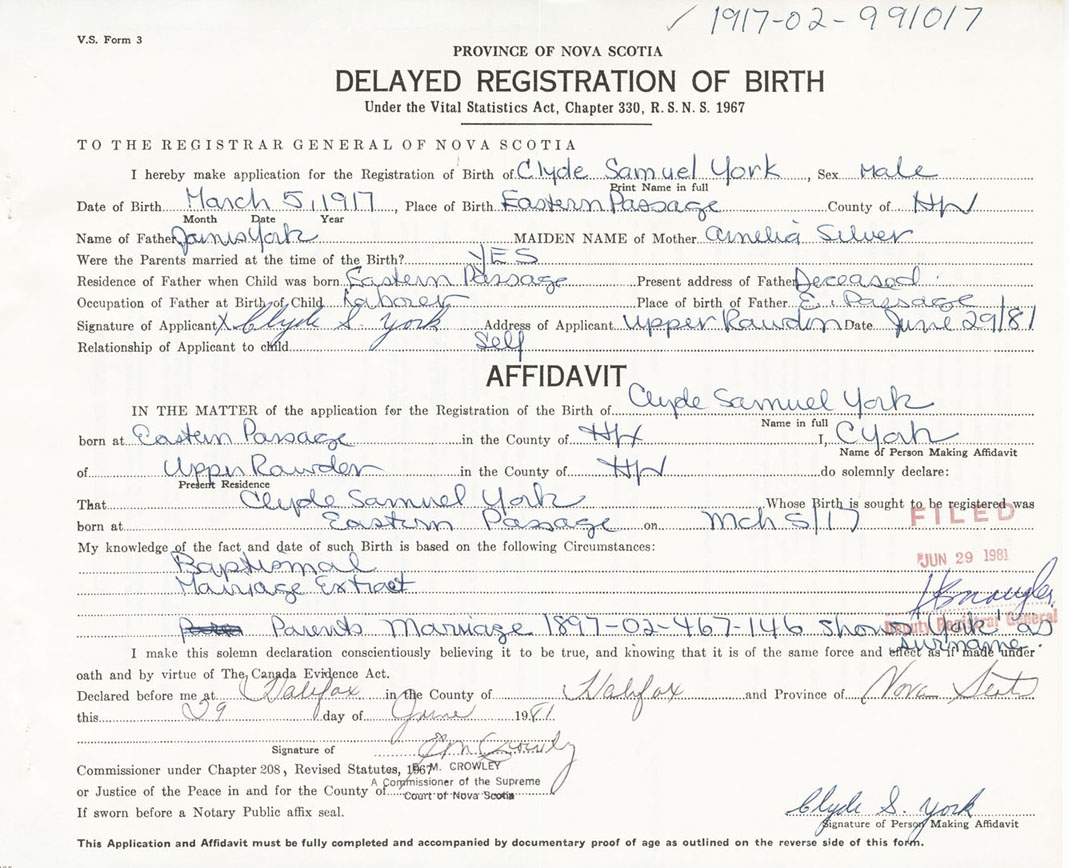 ✓ 1917-02-991017
V.S. Form 3
PROVINCE OF NOVA SCOTIA
DELAYED REGISTRATION OF BIRTH
Under the Vital Statistics Act, Chapter 330, R.S.N.S. 1967
TO THE REGISTRAR GENERAL OF NOVA SCOTIA
I hereby make application for the Registration of Birth of Clyde Samuel York, Sex Male
Print Name in full
Date of Birth March 5, 1917, Place of Birth Eastern Passage County of Hfx
Month Date Year
Name of Father James York MAIDEN NAME of Mother Amelia Silver
Were the Parents married at the time of the Birth? YES
Residence of Father when Child was born Eastern Passage Present address of Father Deceased
Occupation of Father at Birth of Child Laborer Place of birth of Father E. Passage
Signature of Applicant X Clyde S. York Address of Applicant Upper Rawdon Date June 29/81
Relationship of Applicant to child Self
AFFIDAVIT
IN THE MATTER of the application for the Registration of the Birth of Clyde Samuel York
Name in full
born at Eastern Passage in the County of Hfx I, C York
Name of Person Making Affidavit
of Upper Rawdon in the County of Hfx do solemnly declare:
Present Residence
That Clyde Samuel York Whose Birth is sought to be registered was
born at Eastern Passage on Mch 5/17
FILED
My knowledge of the fact and date of such Birth is based on the following Circumstances:
JUN 29 1981
Baptismal
Marriage Extract
Deputy Registrar General
Parents Marriage 1897-02-467-146 shows 'York' as
surname.
I make this solemn declaration conscientiously believing it to be true, and knowing that it is of the same force and effect as if made under
oath and by virtue of The Canada Evidence Act.
Declared before me at Halifax in the County of Halifax and Province of Nova Scotia
this 29 day of June 1981
Signature of
E. M. CROWLEY
Commissioner under Chapter 208, Revised Statutes, 1967
A Commissioner of the Supreme
or Justice of the Peace in and for the County of
Court of Nova Scotia
If sworn before a Notary Public affix seal.
Clyde S. York
Signature of Person Making Affidavit
This Application and Affidavit must be fully completed and accompanied by documentary proof of age as outlined on the reverse side of this form.